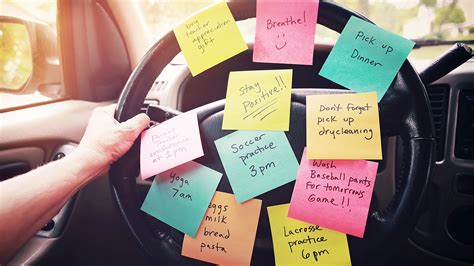 buy
teacher
appreciation
gift
Breathe!
Pick up
Dinner
Stay
Positive!!
Don't forget
pick up
drycleaning
Parent
Teacher
conference
at 2pm
Soccer
practice
3pm
Wash
Baseball pants
For tomorrows
Game!!
Yoga
7am
eggs
milk
bread
pasta
Lacrosse
practice
6pm